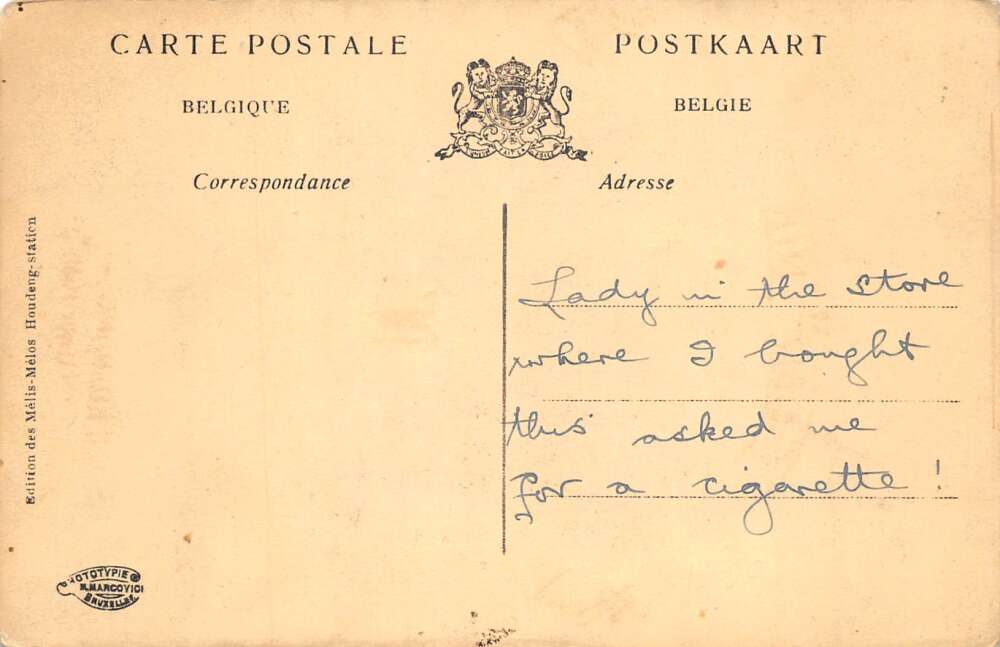 CARTE POSTALE
POSTKAART
BELGIQUE
BELGIE
Correspondance
Adresse
Edition des Mélis-Mélos Houdeng-station
Lady in the store
where I bought
this asked me
for a cigarette!
PHOTOTYPIE
M.MARCOVICI
BRUXELLES